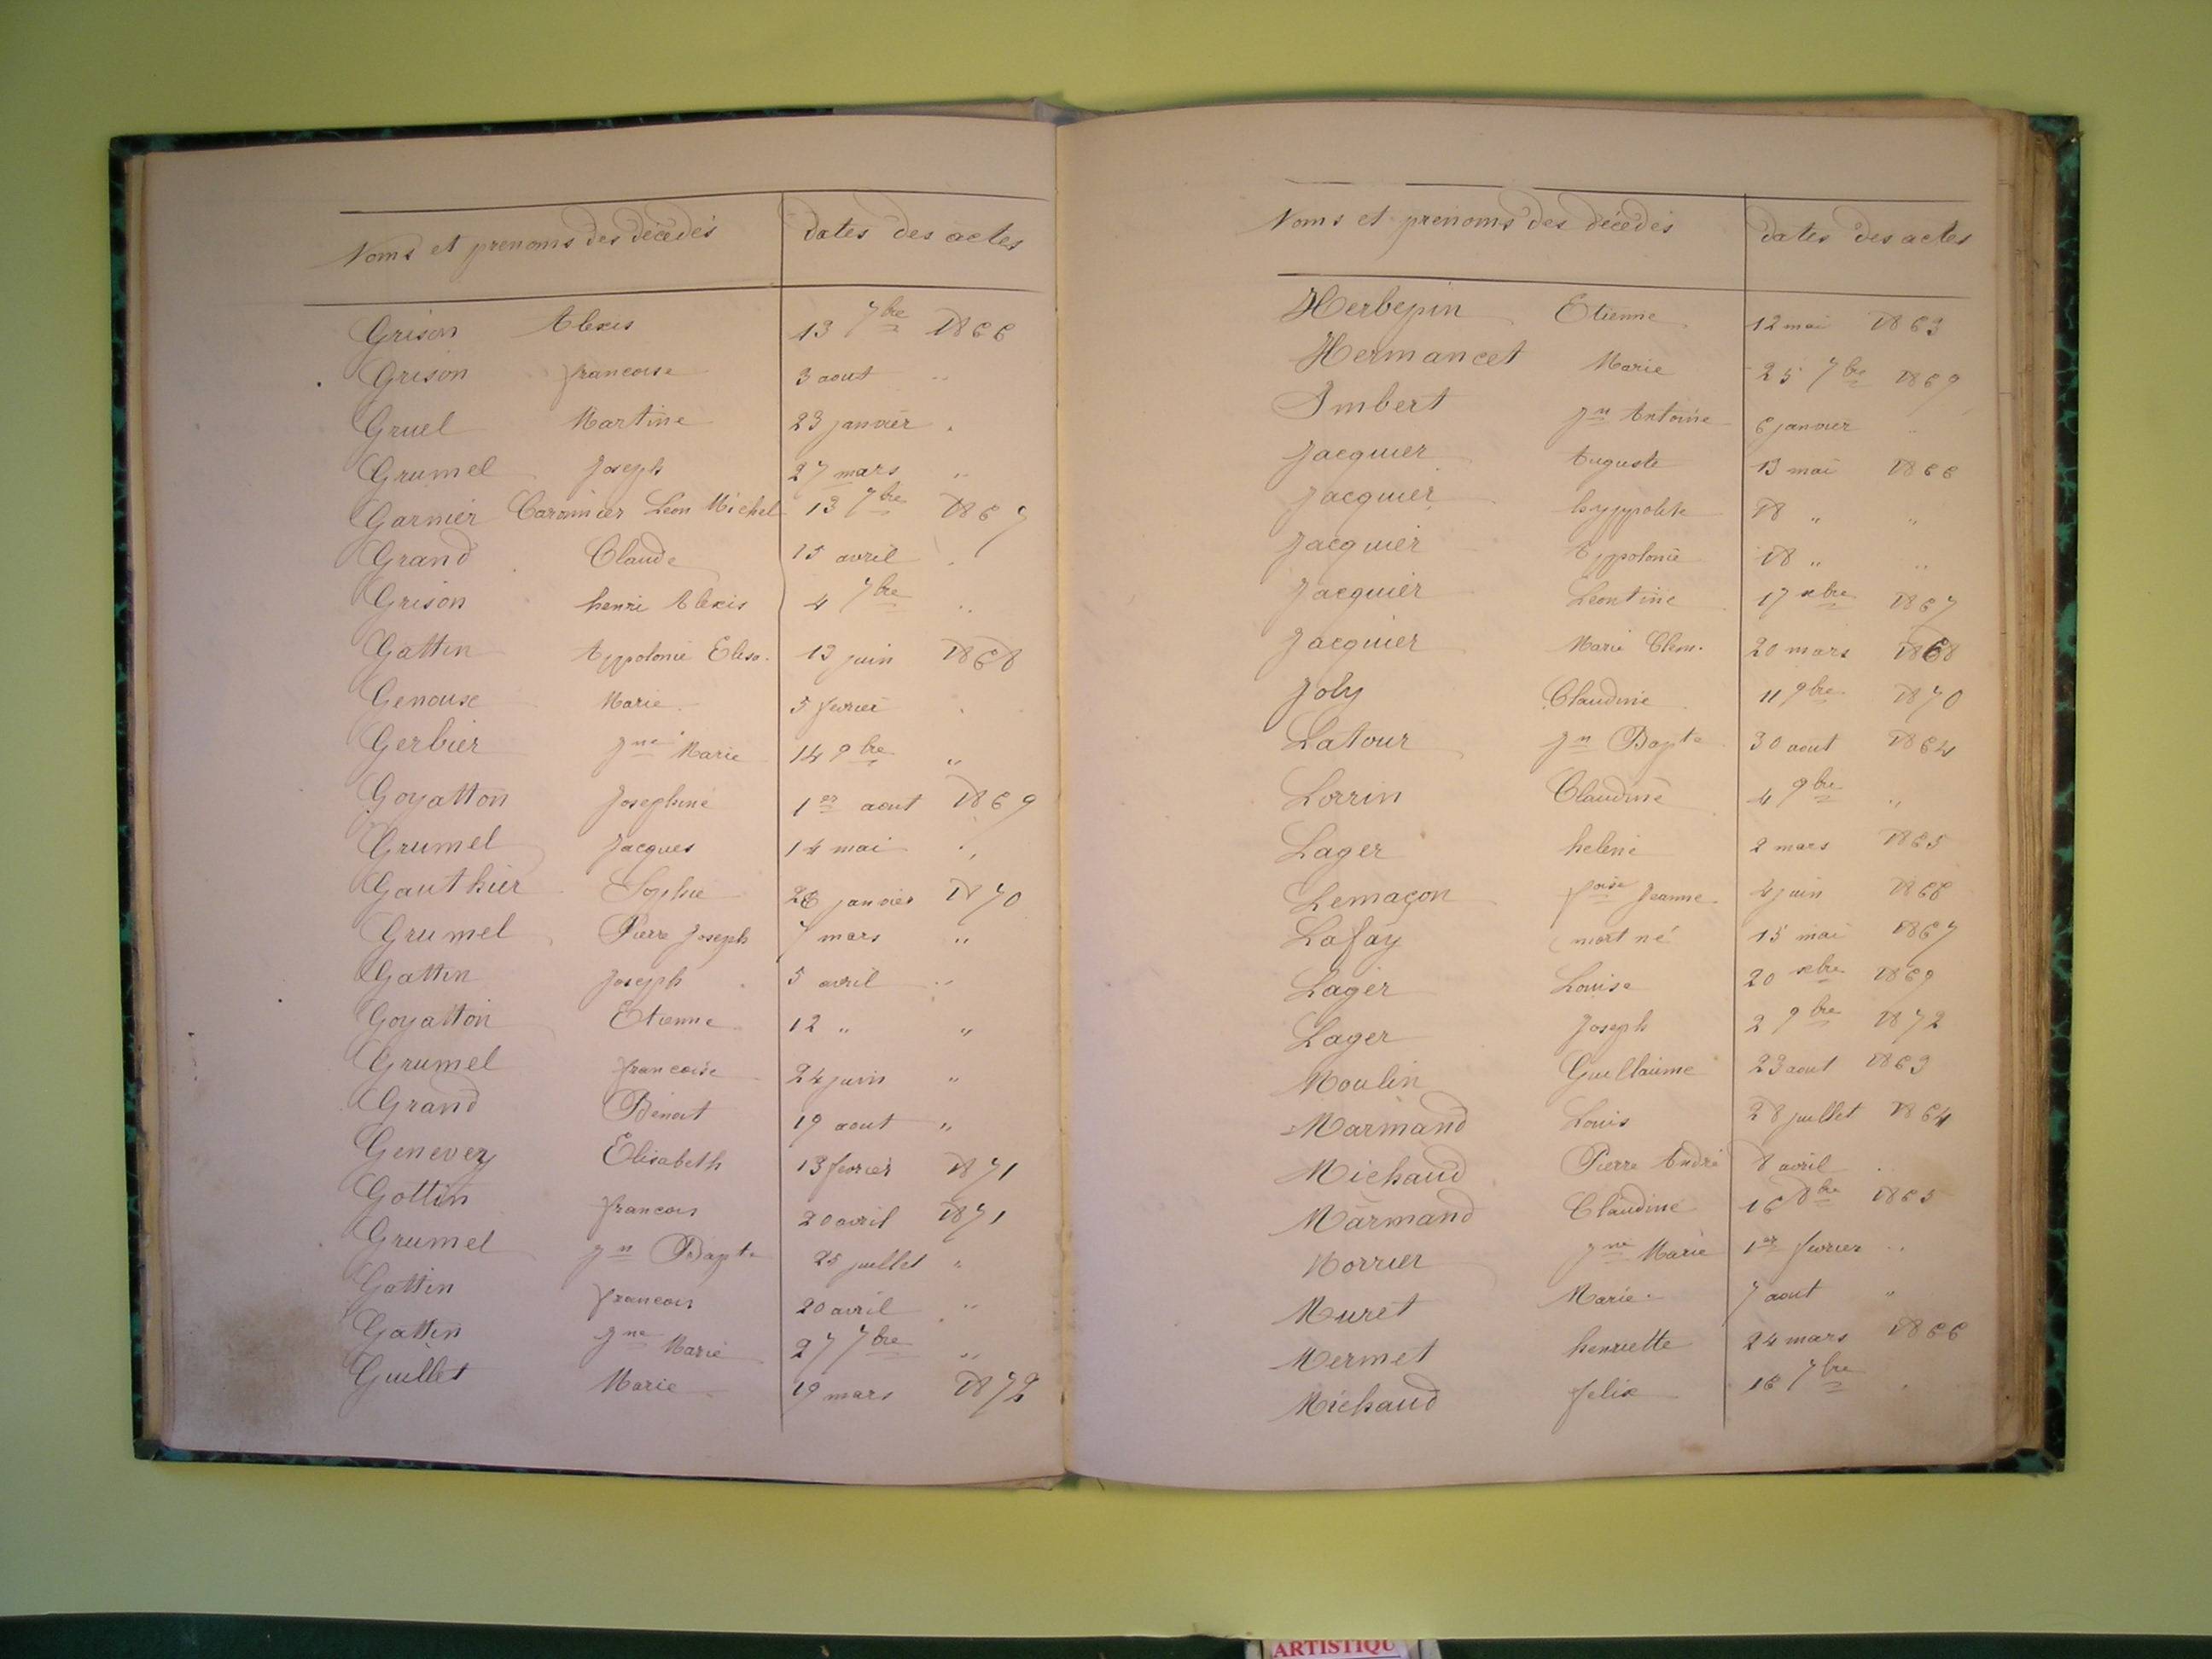 Noms et prenoms des décédés dates des actes
Grison Alexis 13 7bre 1866
Grison francoise 3 aout "
Gruel Martine 23 janvier "
Grumel Joseph 27 mars "
Garnier Leon Michel 13 7bre 1867
Grand Claude 15 avril "
Grison henri Alexis 4 7bre "
Gattin Appolonie Elisa. 13 juin 1868
Genouse Marie 5 fevrier "
Gerbier jne Marie 14 9bre "
Goyatton Josephine 1er aout 1869
Grumel Jacques 14 mai "
Gauthier Sophie 26 janvier 1870
Grumel Pierre Joseph 7 mars "
Gattin Joseph 5 avril "
Goyatton Etienne 12 " "
Grumel francoise 24 juin "
Grand Benoit 19 aout "
Genevey Elisabeth 13 fevrier 1871
Gottin francois 20 avril 1871
Grumel jn Bapte 25 juillet "
Gattin francois 20 avril "
Gattin jne Marie 27 7bre "
Guillet Marie 19 mars 1872
Noms et prenoms des décédés dates des actes
Herbepin Etienne 12 mai 1863
Hermancet Marie 25 7bre 1869
Imbert jn Antoine 6 janvier "
Jacquier Auguste 13 mai 1866
Jacquier hyppolite 18 " "
Jacquier Appolonie 18 " "
Jacquier Leontine 17 xbre 1867
Jacquier Marie Clem. 20 mars 1868
Joly Claudine 11 9bre 1870
Latour jn Bapte 30 aout 1864
Lorrin Claudine 4 9bre "
Lager helene 2 mars 1865
Lemaçon foise Jeanne 4 juin 1866
Lafay mort né 15 mai 1867
Lager Louise 20 xbre 1869
Lager Joseph 2 9bre 1872
Moulin Guillaume 23 aout 1863
Marmand Louis 28 juillet 1864
Michaud Pierre André 8 avril "
Marmand Claudine 16 8bre 1865
Morrier jne Marie 1er fevrier "
Muret Marie 7 aout "
Mermet henriette 24 mars 1866
Michaud felix 16 7bre "
ARTISTIQU